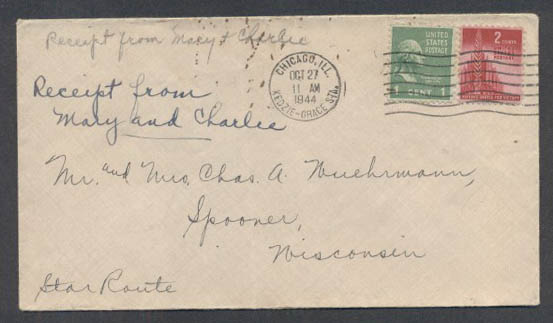 Receipt from Mary & Charlie
Receipt from
Mary and Charlie
CHICAGO, ILL.
OCT 27
11 AM
1944
KEDZIE-GRACE STA.
UNITED
STATES
POSTAGE
1 CENT 1
2 CENTS
Mr. and Mrs. Chas. A. Wuehrmann,
Spooner,
Wisconsin
Star Route